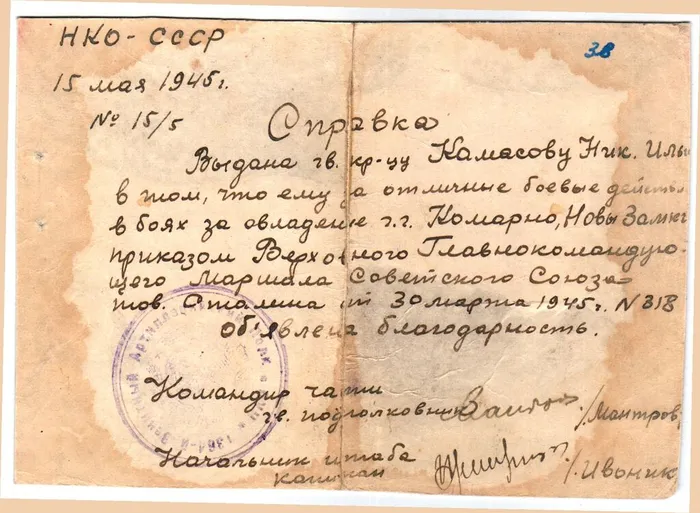 НКО - СССР
38
15 мая 1945 г.
№ 15/5
Справка
Выдана гв. кр-цу Камасову Ник. Ильи
в том, что ему за отличные боевые действ
в боях за овладение г.г. Комарно, Новы Замк
приказом Верховного Главнокомандую-
щего Маршала Советского Союза
тов. Сталина от 30 марта 1945 г. N 318
об'явлена благодарность.
Командир части
гв. подполковник /Мантров
Начальник штаба
капитан /Ивоник
1364-й Зенитный Артиллерийский полк